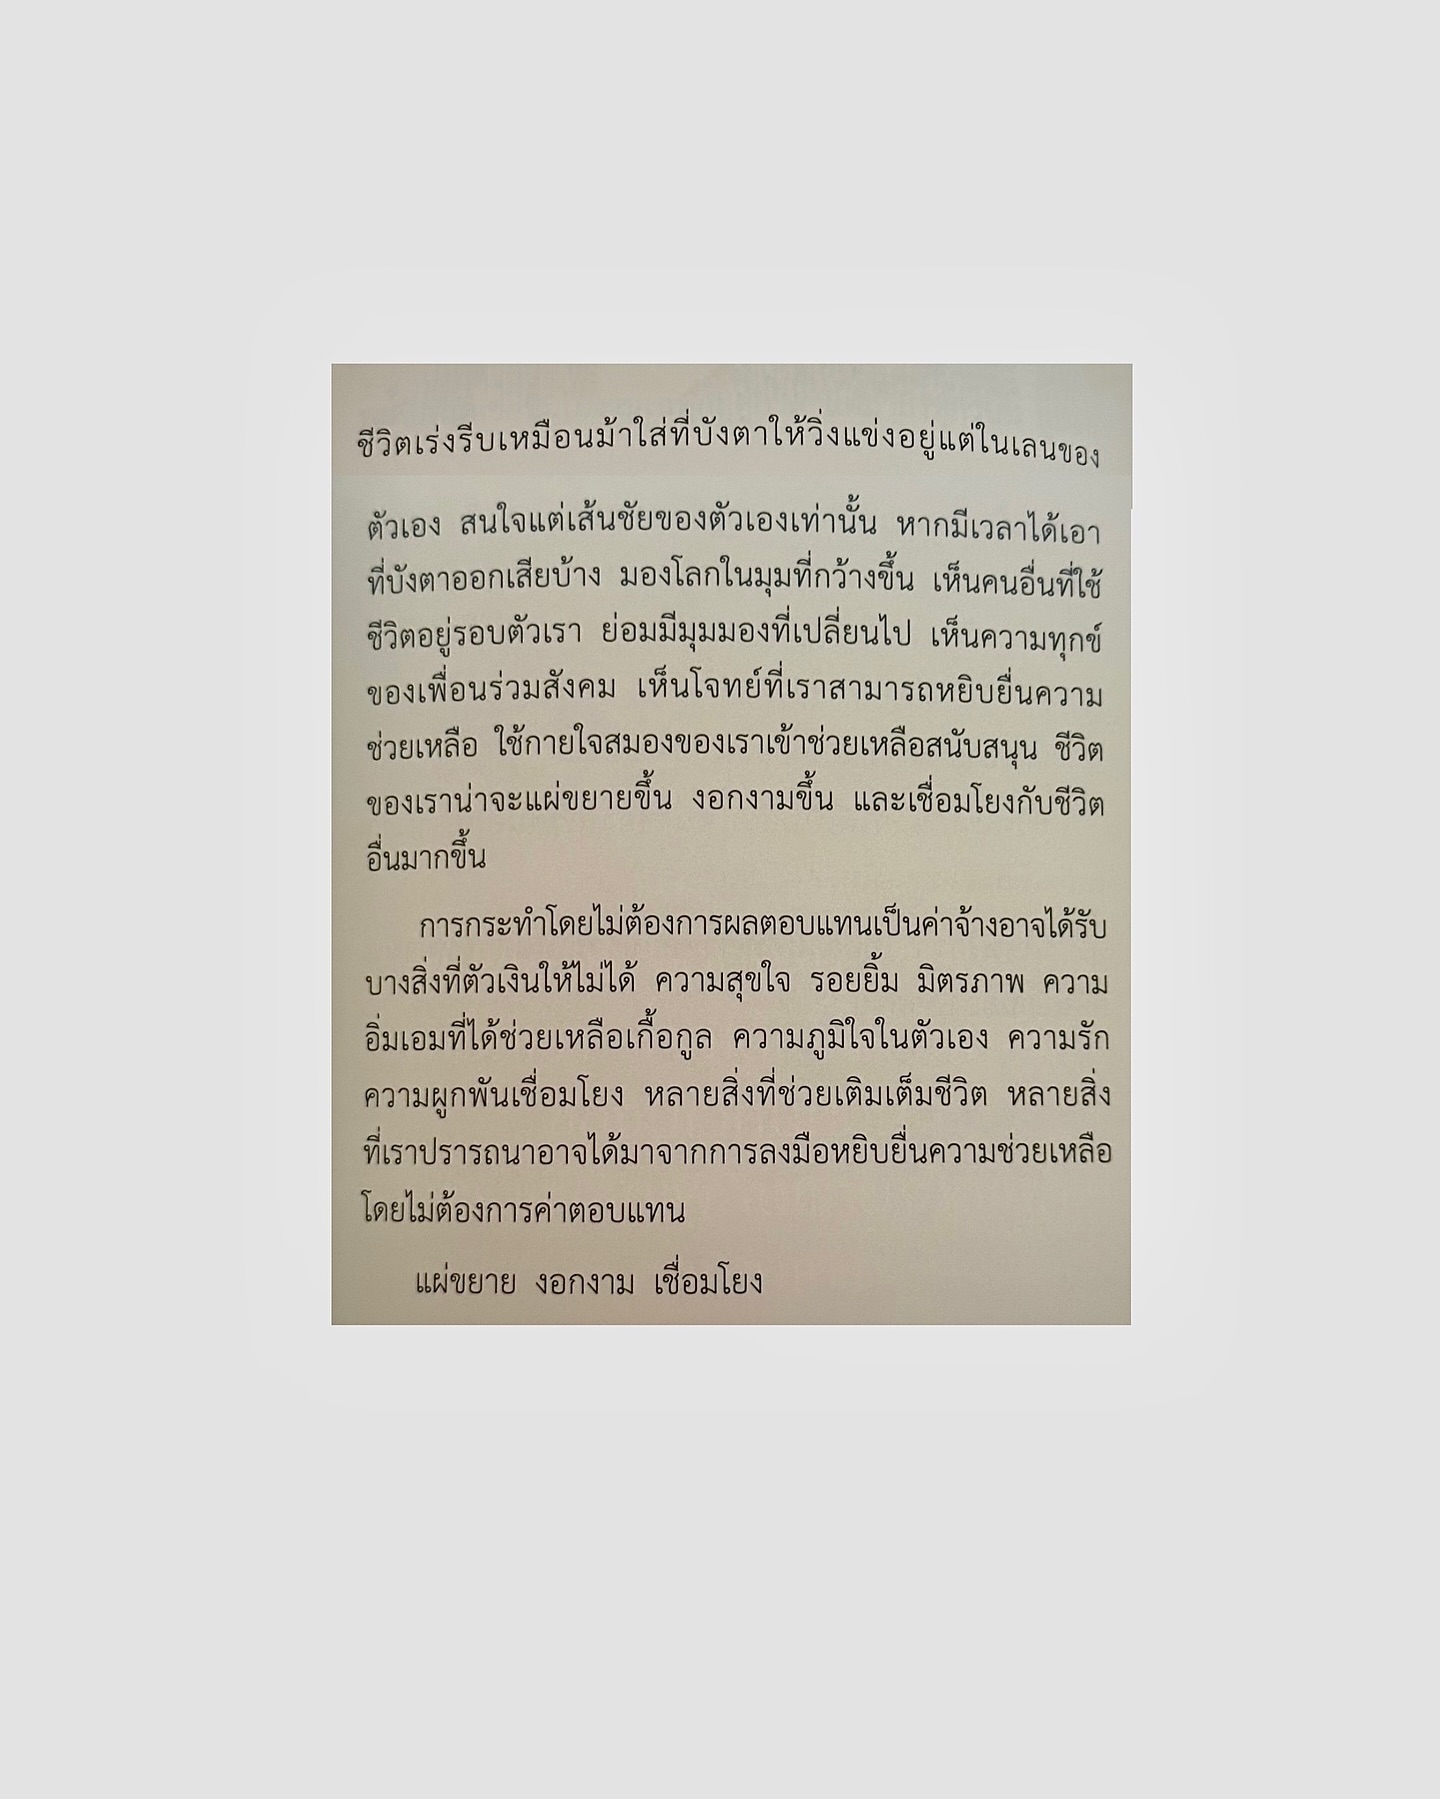 ชีวิตเร่งรีบเหมือนม้าใส่ที่บังตาให้วิ่งแข่งอยู่แต่ในเลนของ
ตัวเอง สนใจแต่เส้นชัยของตัวเองเท่านั้น หากมีเวลาได้เอา
ที่บังตาออกเสียบ้าง มองโลกในมุมที่กว้างขึ้น เห็นคนอื่นที่ใช้
ชีวิตอยู่รอบตัวเรา ย่อมมีมุมมองที่เปลี่ยนไป เห็นความทุกข์
ของเพื่อนร่วมสังคม เห็นโจทย์ที่เราสามารถหยิบยื่นความ
ช่วยเหลือ ใช้กายใจสมองของเราเข้าช่วยเหลือสนับสนุน ชีวิต
ของเราน่าจะแผ่ขยายขึ้น งอกงามขึ้น และเชื่อมโยงกับชีวิต
อื่นมากขึ้น
การกระทำโดยไม่ต้องการผลตอบแทนเป็นค่าจ้างอาจได้รับ
บางสิ่งที่ตัวเงินให้ไม่ได้ ความสุขใจ รอยยิ้ม มิตรภาพ ความ
อิ่มเอมที่ได้ช่วยเหลือเกื้อกูล ความภูมิใจในตัวเอง ความรัก
ความผูกพันเชื่อมโยง หลายสิ่งที่ช่วยเติมเต็มชีวิต หลายสิ่ง
ที่เราปรารถนาอาจได้มาจากการลงมือหยิบยื่นความช่วยเหลือ
โดยไม่ต้องการค่าตอบแทน
แผ่ขยาย งอกงาม เชื่อมโยง